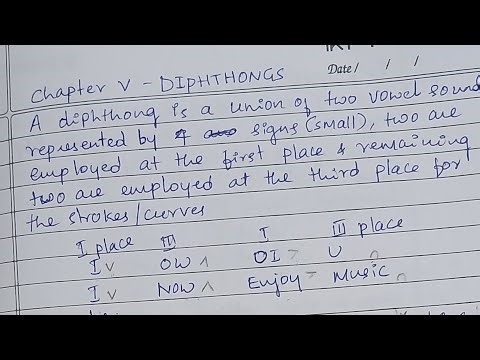 Date / / /
Chapter V - DIPHTHONGS
A diphthong is a union of two vowel sound
represented by 4 signs (small), two are
employed at the first place & remaining
two are employed at the third place for
the strokes/curves
I place III I III place
I OW OI U
I NOW Enjoy Music